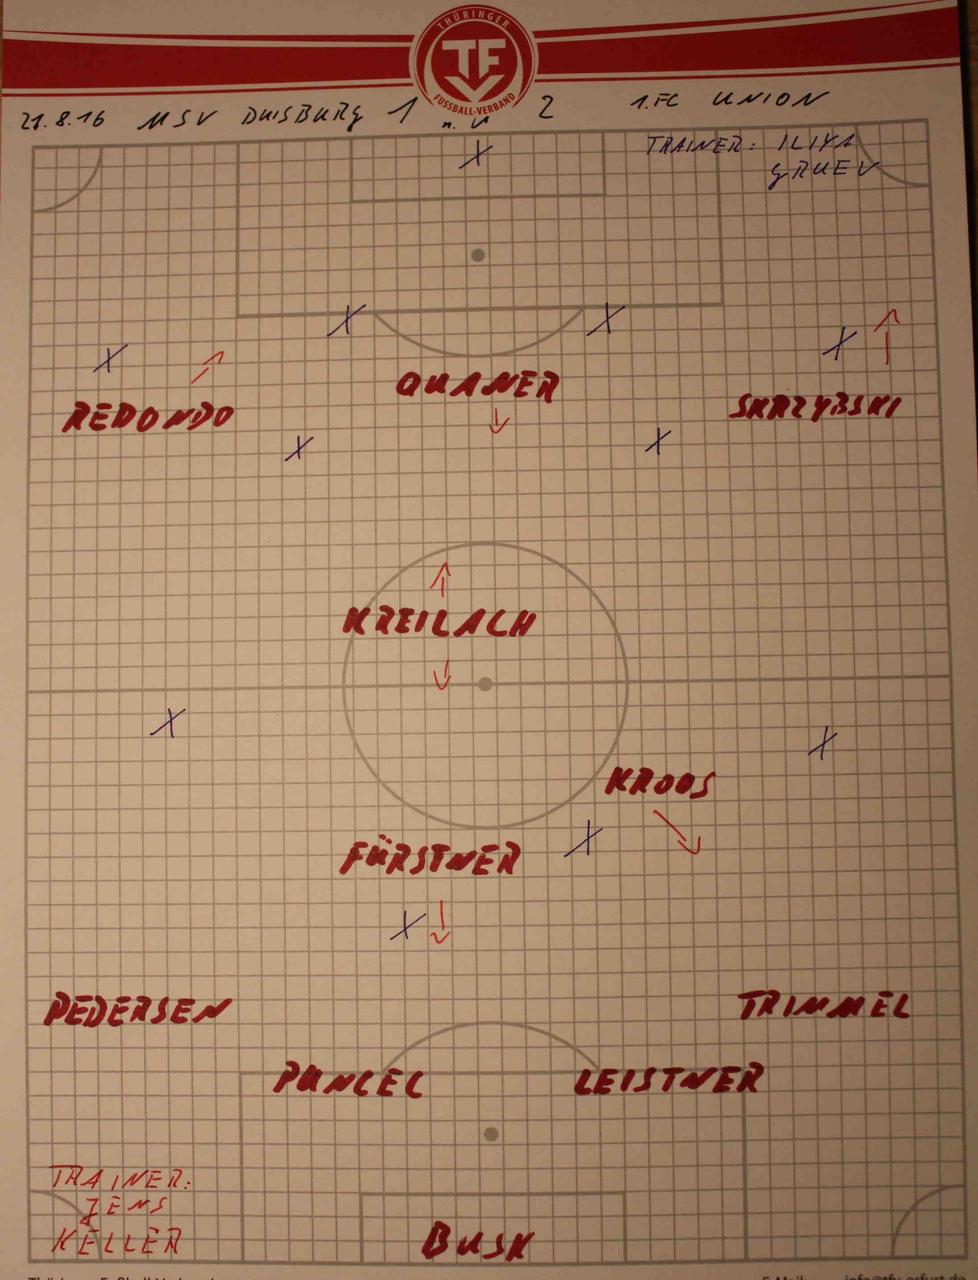 THÜRINGER
TF
FUSSBALL-VERBAND
21.8.16 MSV DUISBURG 1 2 1.FC UNION
n. V
X
TRAINER: ILIYA
GRUEV
X X
X X
REDONDO QUANER SKRZYBSKI
X X
KREILACH
X X
KROOS
FÜRSTNER X
X
PEDERSEN TRIMMEL
PUNCEL LEISTNER
TRAINER:
JENS
KELLER BUSK